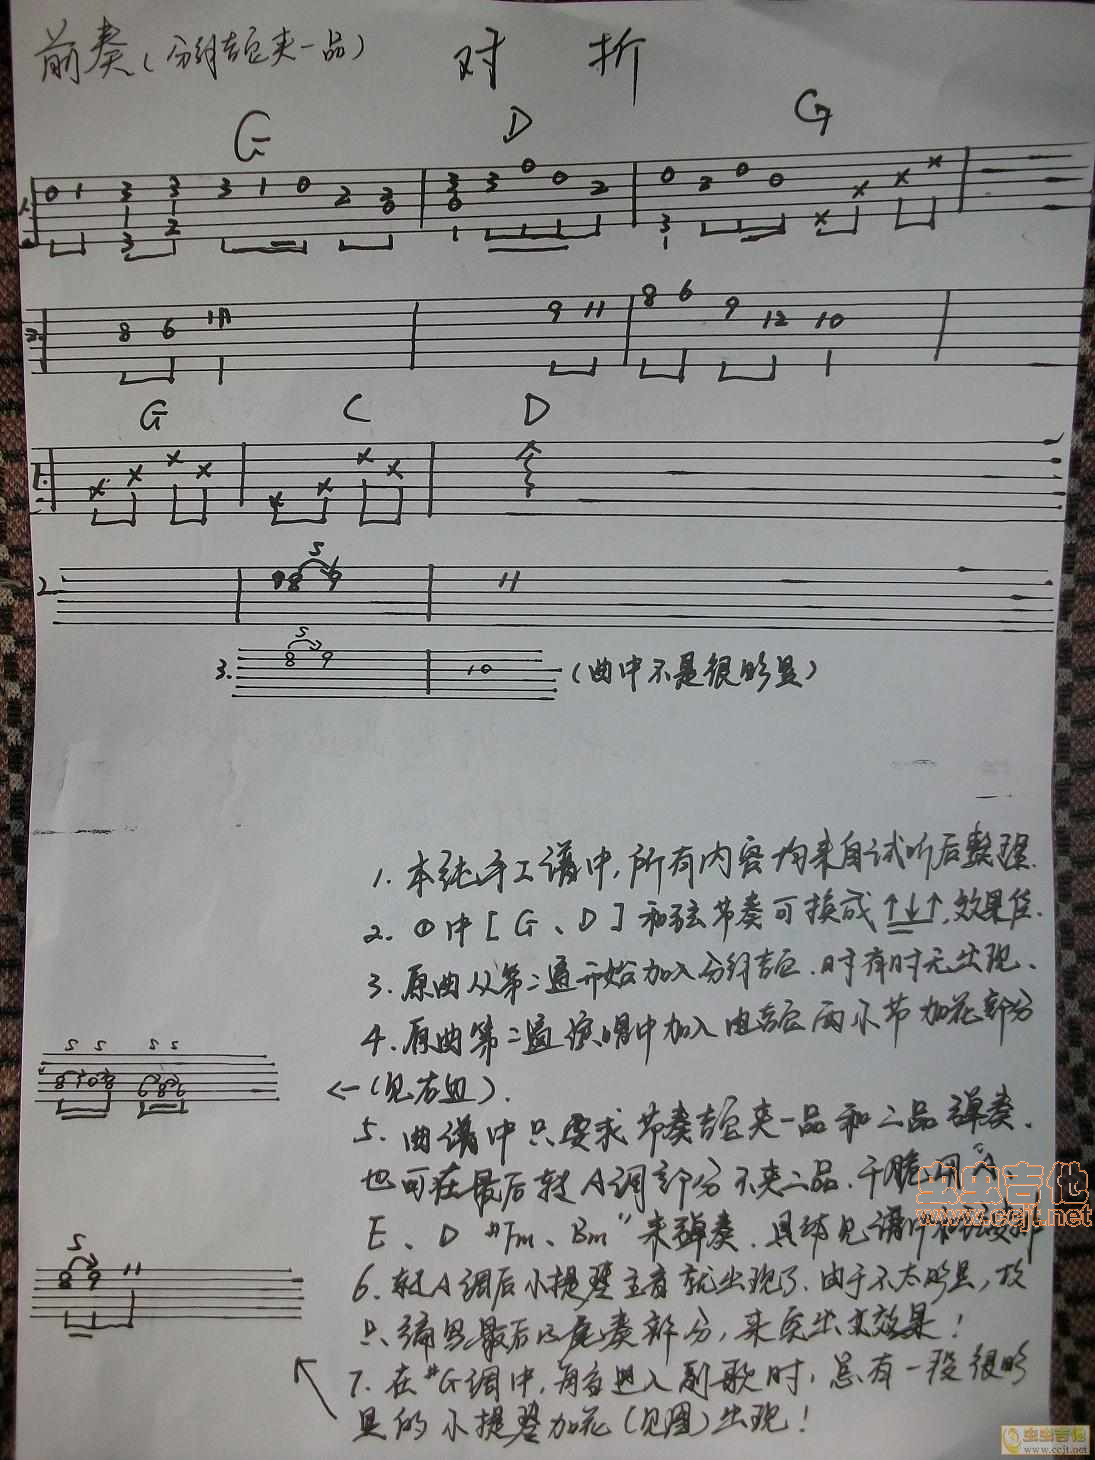 前奏(分针吉它夹一品) 对 折
G D G
1.
0 1 3 3 3 1 0 2 3 3 3 0 0 2 0 2 0 0 × × ×
3 2 0 0 3 ×
2.
8 6 11 9 11 8 6 9 12 10
G C D
1.
× × × × × × × ×
2. 8 S 9 11
3. 8 S 9 10 (曲中不是很明显)
1. 本纯手工谱中,所有内容均来自试听后整理.
2. ①中[G、D]和弦节奏可换成↑↓↑,效果佳.
3. 原曲从第二遍开始加入分针吉它.时有时无出现.
4. 原曲第二遍演唱中加入电吉它两小节加花部分
S S S S
8 10 8 6 8 6
←(见左面).
5. 曲谱中只要求节奏吉它夹一品和二品弹奏.
也可在最后转A调部分不夹二品.干脆用"A、
E、D #Fm、Bm"来弹奏.具体见谱中和弦
6. 转A调后小提琴主音就出现了.由于不太明显,故
只编写最后的尾奏部分,来突出其效果!
S
8 9 11
7. 在#G调中,每当进入副歌时,总有一段很明
显的小提琴加花(见图)出现!
虫虫吉他
www.ccjt.net
虫虫吉他
www.ccjt.net